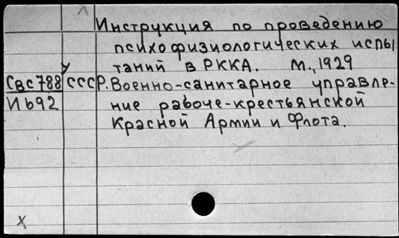 Инструкция по проведению
психофизиологических испы
таний в РККА. М., 1929
Свс788 СССР. Военно-санитарное управле-
И692 ние рабоче-крестьянской
Красной Армии и Флота.
X